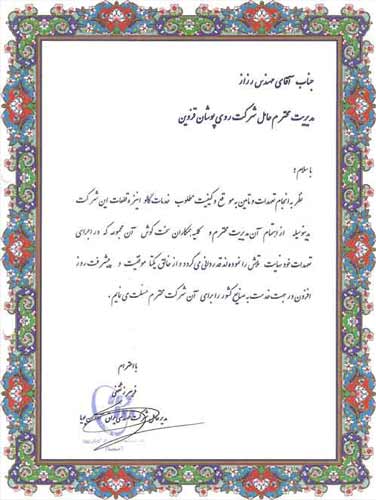 جناب آقای مهندس رزاز
مدیریت محترم عامل شرکت روی پوشان قزوین
با سلام؛
نظر به انجام تعهدات و تأمین به موقع و کیفیت مطلوب خدمات گالوانیزه قطعات این شرکت
بدینوسیله از اهتمام آن مدیریت محترم و کلیه همکاران سخت کوش آن مجموعه که در اجرای
تعهدات خود نهایت تلاش را نموده اند قدردانی می گردد و از خالق یکتا موفقیت و پیشرفت روز
افزون در جهت خدمت به صنایع کشور را برای آن شرکت محترم مسئلت می نمایم.
با احترام
مدیر عامل شرکت